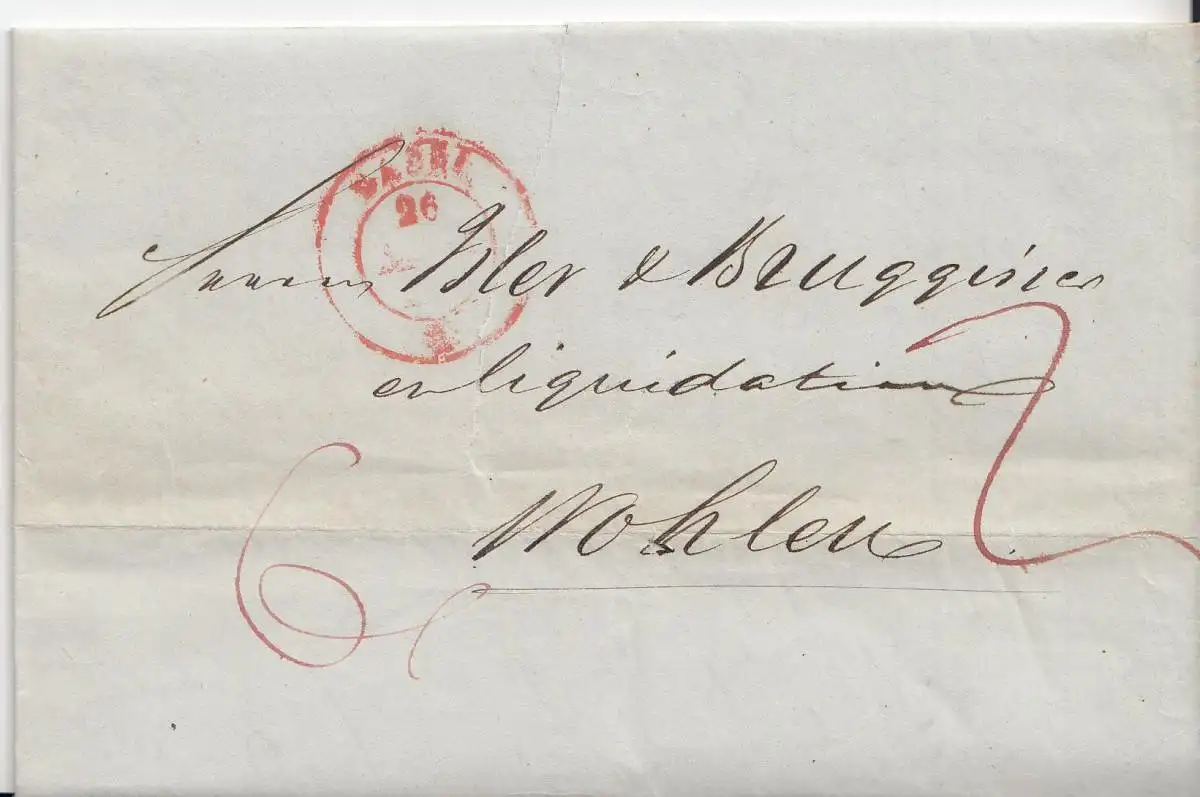 BASEL
26
Herren Isler & Bruggisser
en liquidation
Wohlen
6
2